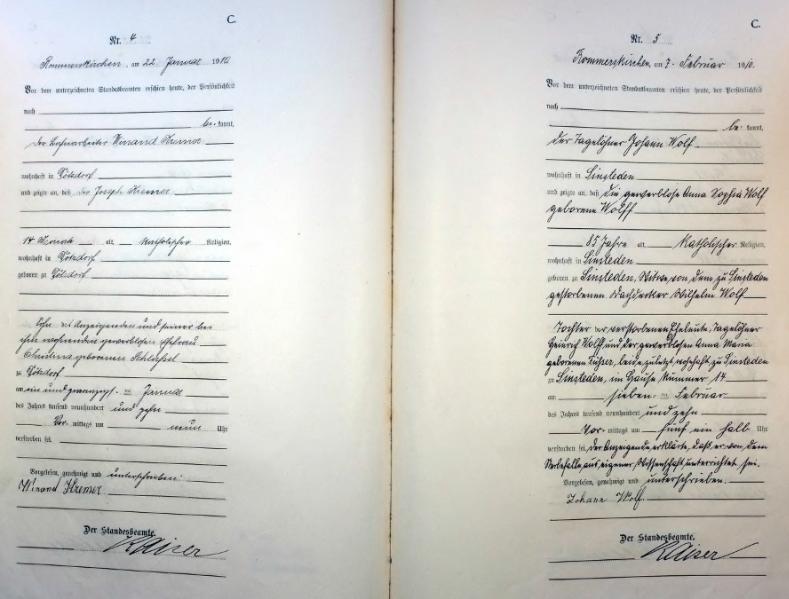 C.
Nr. 4
Rommerskirchen, am 22 Januar 1910
Vor dem unterzeichneten Standesbeamten erschien heute, der Persönlichkeit
nach
be- kannt,
der Winand Kremer
wohnhaft in
und zeigte an, daß der Joseph Kremer
14 Monate alt, katholischer Religion,
wohnhaft in
geboren zu
Sohn des Anzeigenden und seiner bei
ihm wohnenden gewerblosen Ehefrau
geborenen
zu
am ein und zwanzigsten Januar
des Jahres tausend neunhundert und zehn
Vor- mittags um neun Uhr
verstorben sei.
Vorgelesen, genehmigt und unterschrieben.
Winand Kremer
Der Standesbeamte.
Kaiser
C.
Nr. 5
Rommerskirchen, am 7. Februar 1910.
Vor dem unterzeichneten Standesbeamten erschien heute, der Persönlichkeit
nach
be- kannt,
der Tagelöhner Johann Wolf
wohnhaft in Sinsteden
und zeigte an, daß die gewerblose Anna Sophia Wolf
geborene Wolff
85 Jahre alt, katholischer Religion,
wohnhaft in Sinsteden
geboren zu Sinsteden, Witwe von dem zu Sinsteden
gestorbenen Dachdecker Wilhelm Wolf
Tochter der verstorbenen Eheleute, Tagelöhner
Georg Wolff und der gewerblosen Anna Maria
geborenen beide zuletzt wohnhaft zu Sinsteden
zu Sinsteden, im Hause Nummer 14
am sieben- ten Februar
des Jahres tausend neunhundert und zehn
Vor- mittags um fünf ein halb Uhr
verstorben sei, der Anzeigende erklärte, daß er von dem
Sterbefalle aus eigener Wissenschaft unterrichtet sei.
Vorgelesen, genehmigt und unterschrieben.
Johann Wolf
Der Standesbeamte.
Kaiser